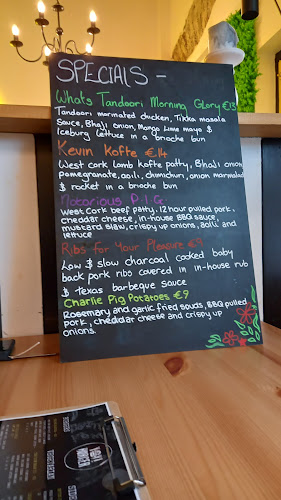 SPECIALS -
Whats Tandoori Morning Glory €13
Tandoori marinated chicken, Tikka masala
Sauce, Bhaji onion, Mango Lime mayo &
Iceburg Lettuce in a brioche bun
Kevin Kofte €14
West cork Lamb Kofta patty, Bhaji onion
pomegranate, aoili, chimichuri, onion marmalad
& rocket in a brioche bun
Notorious P.I.G.
West Cork beef patty, 12 hour pulled pork,
cheddar cheese, in-house BBQ sauce,
mustard slaw, crispy up onions, aoili and
lettuce
Ribs for Your Pleasure €9
Low & slow charcoal cooked baby
back pork ribs covered in in-house rub
& Texas barbeque sauce
Charlie Pig Potatoes €9
Rosemary and garlic fried spuds, BBQ pulled
pork, cheddar cheese and crispy up
onions.